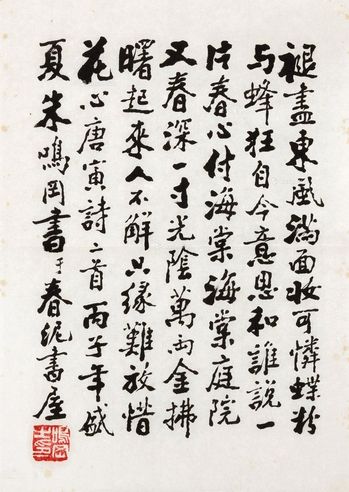 褪盡東風滿面妝可憐蝶粉
与蜂狂自今意思和誰說一
片春心付海棠海棠庭院
又春深一寸光陰萬兩金拂
曙起來人不解只緣難放惜
花心唐寅詩二首丙子年盛
夏朱鳴岡書于春泥書屋